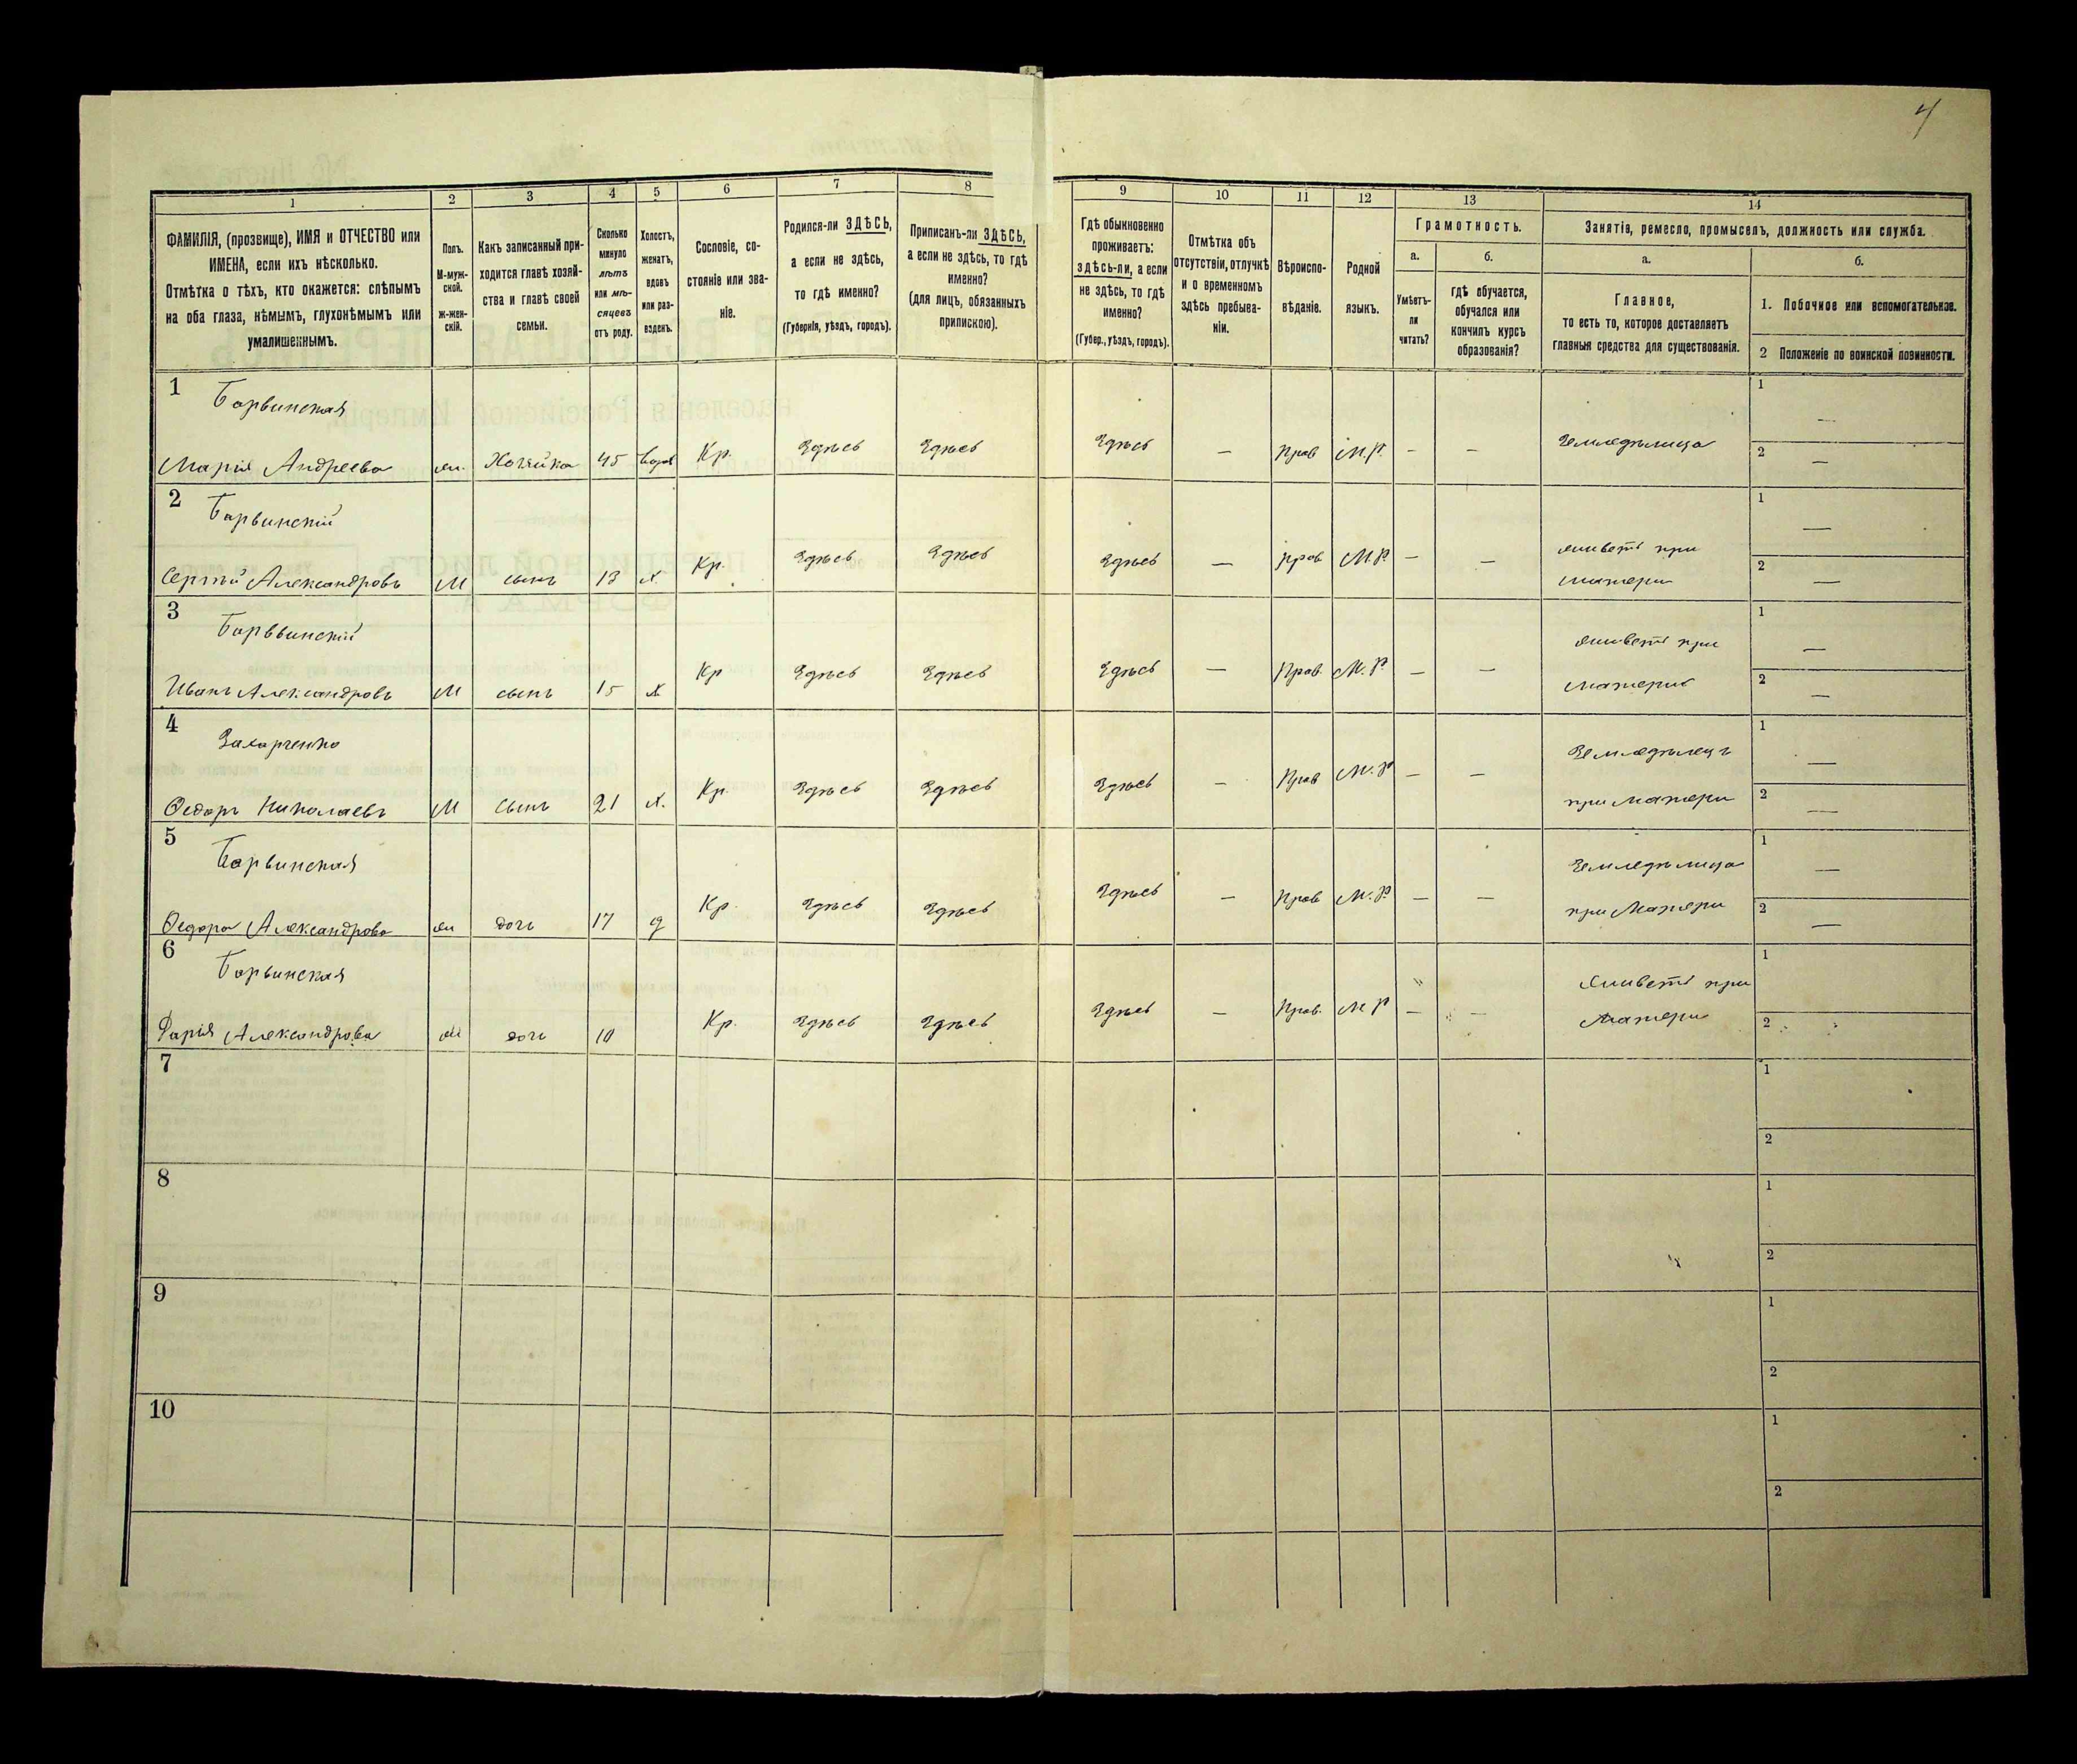 4
1 2 3 4 5 6 7 8 9 10 11 12 13 14
ФАМИЛІЯ, (прозвище), ИМЯ и ОТЧЕСТВО или
ИМЕНА, если ихъ нѣсколько.
Отмѣтка о тѣхъ, кто окажется: слѣпымъ
на оба глаза, нѣмымъ, глухонѣмымъ или
умалишеннымъ.
Полъ.
М-муж-
ской.
Ж-жен-
скій.
Какъ записанный при-
ходится главѣ хозяй-
ства и главѣ своей
семьи.
Сколько
минуло
лѣтъ
или мѣ-
сяцевъ
отъ роду.
Холостъ,
женатъ,
вдовъ
или раз-
веденъ.
Сословіе, со-
стояніе или зва-
ніе.
Родился-ли ЗДѢСЬ,
а если не здѣсь,
то гдѣ именно?
(Губернія, уѣздъ, городъ).
Приписанъ-ли ЗДѢСЬ,
а если не здѣсь, то гдѣ
именно?
(для лицъ, обязанныхъ
припискою).
Гдѣ обыкновенно
проживаетъ:
здѣсь-ли, а если
не здѣсь, то гдѣ
именно?
(Губер., уѣздъ, городъ).
Отмѣтка объ
отсутствіи, отлучкѣ
и о временномъ
здѣсь пребыва-
ніи.
Вѣроиспо-
вѣданіе.
Родной
языкъ.
Грамотность.
а.
Умѣетъ-
ли
читать?
б.
гдѣ обучается,
обучался или
кончилъ курсъ
образованія?
Занятіе, ремесло, промыселъ, должность или служба.
а.
Главное,
то есть то, которое доставляетъ
главныя средства для существованія.
б.
1. Побочное или вспомогательное.
2 Положеніе по воинской повинности.
1 Барвинская
Марія Андреева ж. Хозяйка 45 вдова Кр. Здѣсь Здѣсь Здѣсь — Прав М.Р. — — Земледѣлица
1 —
2 —
2 Барвинскій
Сергѣй Александровъ М сынъ 13 х. Кр. Здѣсь Здѣсь Здѣсь — прав М.Р. — — живетъ при
матери
1 —
2 —
3 Барввинскій
Иванъ Александровъ М сынъ 15 х Кр Здѣсь Здѣсь Здѣсь — Прав. М.Р. — — живетъ при
матери
1 —
2 —
4 Захарченко
Ѳедоръ Николаевъ М сынъ 21 х. Кр. Здѣсь Здѣсь Здѣсь — Прав М.Р — — Земледѣлецъ
при матери
1 —
2 —
5 Барвинская
Ѳедора Александрова ж дочь 17 д Кр. Здѣсь Здѣсь Здѣсь — Прав М.Р. — — Земледѣлица
при Матери
1 —
2 —
6 Барвинская
Дарія Александрова ж дочь 10 Кр. Здѣсь Здѣсь Здѣсь — Прав. М Р — — Живетъ при
матери
1
2
7
1
2
8
1
2
9
1
2
10
1
2